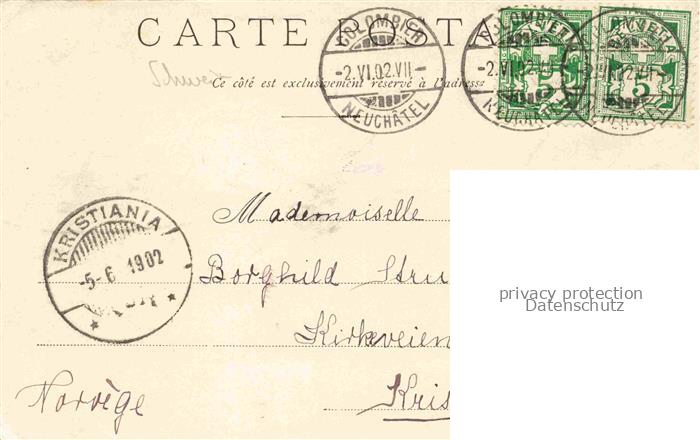 CARTE POSTA
COLOMBIER
-2.VI.02.VII-
NEUCHÂTEL
Schweiz
Ce côté est exclusivement réservé à l'adresse
HELVETIA
5
5
KRISTIANIA
-5-6 1902
Mademoiselle
Borghild Stru
Kirkeveien
Kris
Norvège
privacy protection
Datenschutz